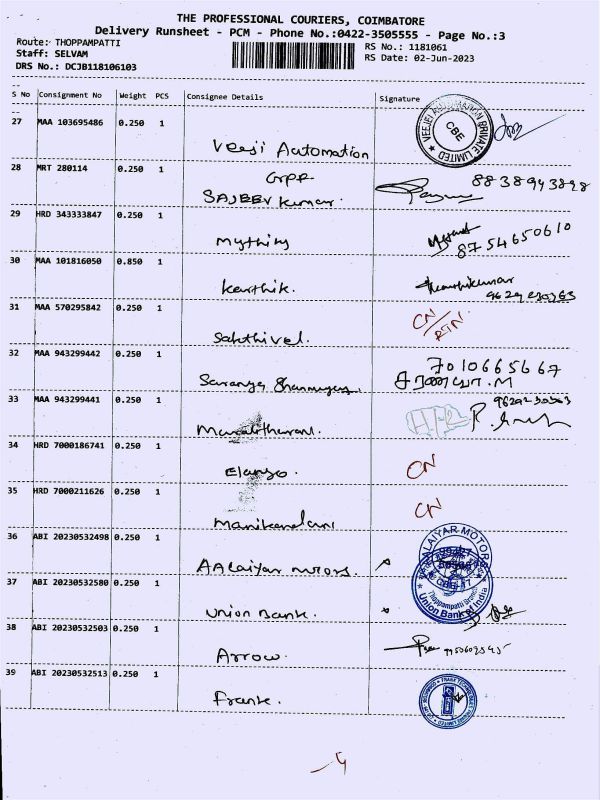 THE PROFESSIONAL COURIERS, COIMBATORE
Delivery Runsheet - PCM - Phone No.:0422-3505555 - Page No.:3
Route: THOPPAMPATTI RS No.: 1181061
Staff: SELVAM RS Date: 02-Jun-2023
DRS No.: DCJB118106103
S No Consignment No Weight PCS Consignee Details Signature
27 MAA 103695486 0.250 1
Veeji Automation VEEJEI AUTOMATION PRIVATE LIMITED CBE
28 MRT 280114 0.250 1
SAJEEV Kumar. 8838943828
29 HRD 343333847 0.250 1
Mythily 8754650610
30 MAA 101816050 0.850 1
Karthik.
31 MAA 570295842 0.250 1 CN/RTN
Sakthivel.
32 MAA 943299442 0.250 1 7010665667
Saranya
33 MAA 943299441 0.250 1
Muralitharan.
34 HRD 7000186741 0.250 1 CN
Elango.
35 HRD 7000211626 0.250 1 CN
Manikandan
36 ABI 20230532498 0.250 1
AAlaiyar motors ALAIYAR MOTOR
37 ABI 20230532580 0.250 1
Union Bank. Thoppampatti Union Bank of India
38 ABI 20230532503 0.250 1
Arrow.
39 ABI 20230532513 0.250 1
Frank.